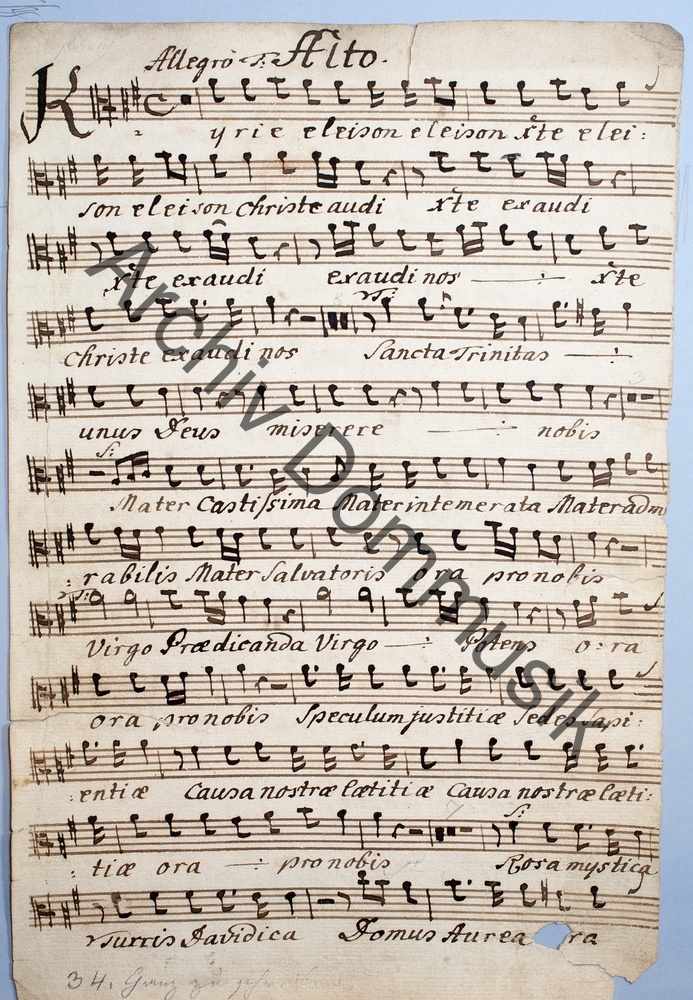 Allegro T: Alto.
Kyrie eleison eleison Xte elei:
son eleison Christe audi Xte exaudi
Xte exaudi exaudi nos Xte
Ts:
Christe exaudi nos Sancta Trinitas
3
unus Deus miserere nobis
S:
Mater Castissima Mater intemerata Mater adm
: rabilis Mater Salvatoris ora pro nobis
Ts:
Virgo Prædicanda Virgo Potens o: ra
ora pro nobis Speculum justitiæ Sedes sapi:
: entiæ Causa nostræ lætitiæ Causa nostræ læti:
7
S:
: tiæ ora pro nobis Rosa mystica
Turris Davidica Domus Aurea ra
34. Ganz zu
Archiv Dommusik